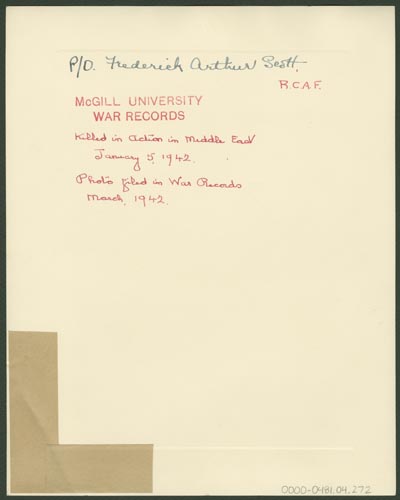 P/O. Frederick Arthur Scott.
R.C.A.F.
McGILL UNIVERSITY
WAR RECORDS
Killed in action in Middle East
January 5, 1942.
Photo filed in War Records
March, 1942.
0000-0481.04.272